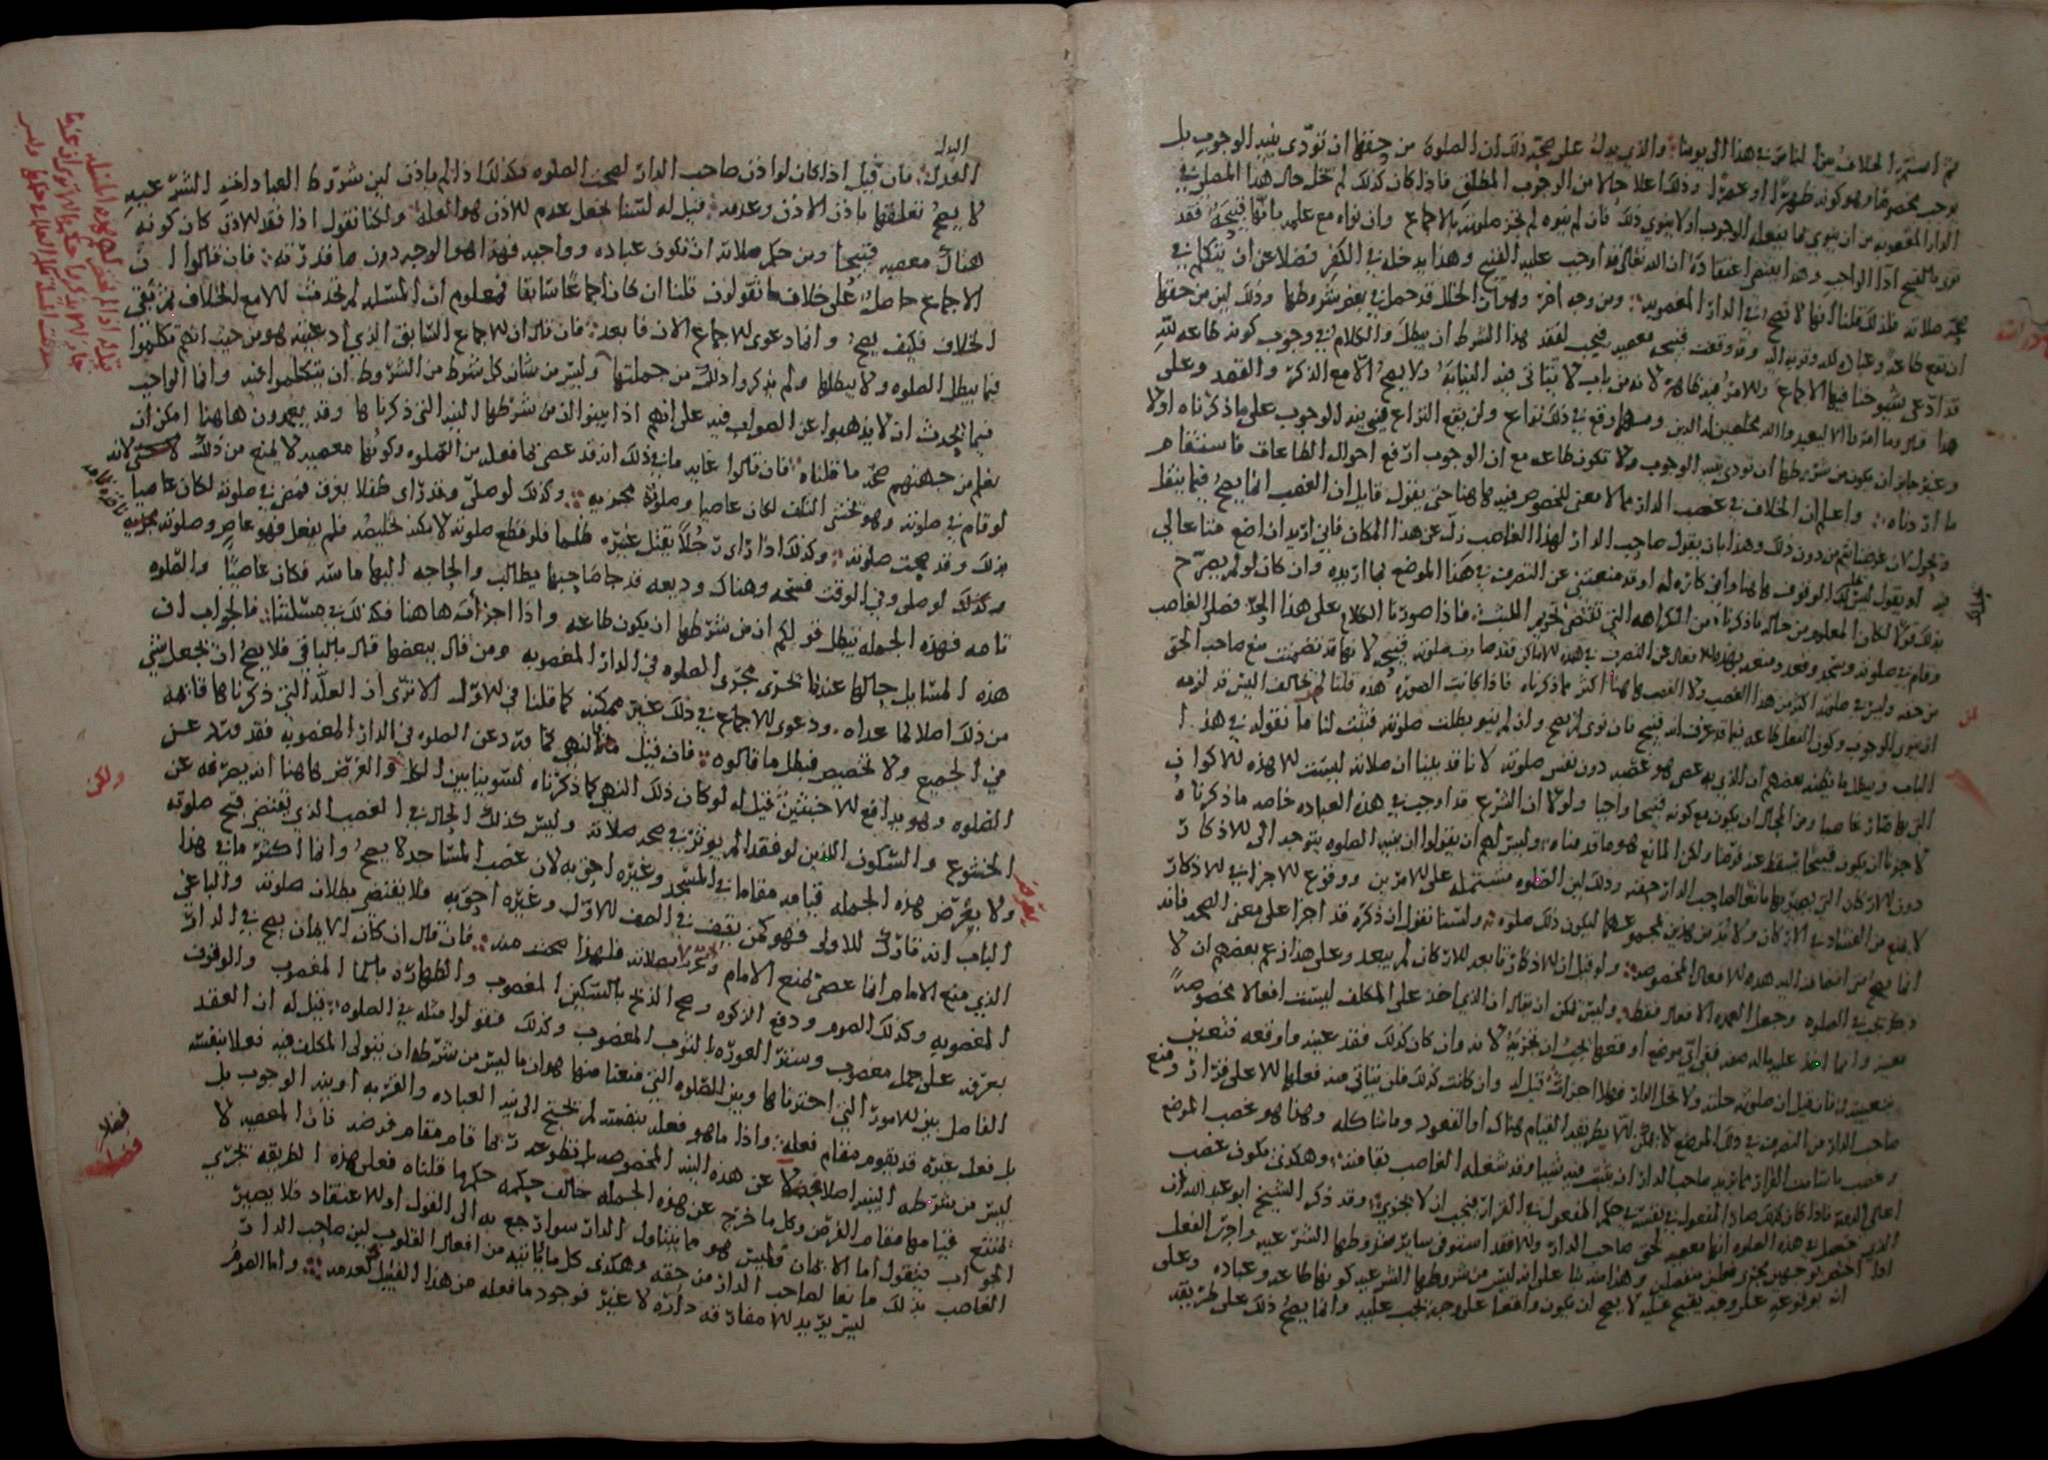 ثم استمر الخلاف بين الناس في هذا الى يومنا والذي يدل على صحة ذلك ان الصلوة من حقها ان تؤدى بنية الوجوب بل
يوجب تخصيصها وهو كونه ظهرًا او عصرًا وذلك اعلا حالا من الوجوب المطلق فاذا كان كذلك لم تخل حال هذا المصلي في
الدار المغصوبة من ان ينوي بما يفعله الوجوب او لا ينوي ذلك فان لم ينوه لم تجز صلوته بالاجماع وان نواه مع علمه بانها قبيحة فقد
نوى بالقبيح اداء الواجب وهذا يقتضي اعتقاده ان الله تعالى قد اوجب عليه القبيح وهذا يدخله في الكفر فضلا عن ان يتكلم في
صحة صلاته فلذلك قلنا انها لا تصح في الدار المغصوبة ومن وجه اخر وهو ان الخلل قد حصل في بعض شروطها وذلك لان من حقها
ان تقع طاعة وعبادة لله وقربة اليه وقد وقعت قبيحة معصية فيجب لفقد هذا الشرط ان يبطل والكلام في وجوب كونه طاعه لله
قد ادعى شيوخنا فيها الاجماع والامر فيه ظاهر لانه من باب لا يتاتى فيه النيابة ولا يصح الا مع الذكر والقصد وعلى
هذا قيل وما امروا الا ليعبدوا الله مخلصين له الدين ومهما وقع في ذلك نزاع ولن يقع النزاع في نية الوجوب على ما ذكرناه اولا
وغير جايز ان يكون من شرطها ان تؤدى بنية الوجوب ولا تكون طاعه مع ان الوجوب ارفع احوال الطاعات فاستقام
ما اردناه واعلم ان الخلاف في غصب الدار مما لا معنى للخصوص فيه هاهنا حتى يقول قايل ان الغصب انما يصح فيما ينقل
ويحول لان غرضنا يتم من دون ذلك وهذا بان يقول صاحب الدار لهذا الغاصب زل عن هذا المكان فاني اريد ان اضع متاعا لي
فيه او يقول ليس لك الوقوف هاهنا واني كاره له او قد منعتني عن التصرف في هذا الموضع بما اريده وان كان لو لم يصرح
بذلك قولا لكان المعلوم من حاله ما ذكرناه من الكراهه التي تقتضي تحريم اللبث فاذا صورنا الكلام على هذا الحد فصلى الغاصب
وقام في صلوته وسجد وقعد ومنعه بهذه الافعال عن التصرف في هذه الاماكن فقد صارت صلوته قبيحة لانها قد تضمنت منع صاحب الحق
من حقه وليس في ظلمه اكثر من هذا الغصب ولا الغصب هاهنا اكثر مما ذكرناه فاذا كانت الصورة هذه قلنا لمن يخالف اليس قد لزمه
ان ينوي الوجوب وكون الفعل طاعه فيما قد عرف انه قبيح فان نوى لم يصح وان لم ينو بطلت صلوته فثبت لنا ما نقوله في هذا
الباب ويبطل ما يظنه بعضهم ان الذي به عصى هو غصبه دون نفس صلوته لانا قد بينا ان صلاته ليست الا هذه الاكوان
التي بها صار غاصبا ومن المحال ان يكون مع كونه قبيحا واجبا ولولا ان الشرع قد اوجب في هذه العبادة خاصه ما ذكرناه
لا جوزنا ان يكون قبيحًا يسقط عنه فرضًا ولكن المانع هو ما قدمناه وليس لهم ان يقولوا ان نية الصلوة يتوجه الى الاذكار
دون الاركان التي يصير بها مانعًا لصاحب الدار حقه وذلك لان الصلوه مشتملة على الامرين ووقوع الاجزا في الاذكار
لا يمنع من الفساد في الاركان ولا بد من هذين لمجموعهما ليكون ذلك صلوه ولسنا نقول ان ذكره قد اجزا على معنى الصحه فانه
انما يصح متى انضافت اليه هذه الافعال المخصوصه ولو قيل ان الاذكار تابعه للاركان لم يبعد وعلى هذا زعم بعضهم ان لا
ذكر يجب في الصلوه وجعل العمده الافعال فقط وليس يمكن ان يقال ان الذي اخذ على المكلف ليست افعالا مخصوصةً
معينه وانما اخذ عليه بالصفه ففي اي موضع اوقعها يجب ان تجزيه لانه وان كان كذلك فقد عينه واوقعه فتعين
بتعيينه فان قيل ان صلوته حلت ولا تحل الدار فهلا اجزات قيل له وان كانت كذلك فلن يتاتى منه فعلها الا على قرار ومنع
صاحب الدار من التصرف في ذلك الموضع لا يمكن الا بطريقة القيام هناك او القعود وما شاكله وهذا هو غصب الموضع
وغصب ما شامت القرار مما يريد صاحب الدار ان يثبت فيه شيا وقد شغله الغاصب بقامته وهكذى يكون غصب
اعالي الدار فاذا كان كذلك صار المفعول في نفسه في حكم المفعول في القرار فيجب ان لا يجزي وقد ذكر الشيخ ابو عبدالله ان
الذي حصل في هذه الصلوه انها معصية لحق صاحب الدار والا فقد استوفى ساير شروطها الشرعيه واجرى الفعل
اذا اختص بوجهين مجرى فعلين منفصلين وهذا منه بنا على انه ليس من شروطها الشرعيه كونها طاعه وعباده وعلى
انه بوقوعه على وجه يقبح عليه لا يصح ان يكون واقعا على وجه يجب عليه وانما يصح ذلك على طريقة
البدل
البدل فان قيل اذا كان لو اذن صاحب الدار لصحت الصلوه فكذلك اذا لم ياذن لان شروط العبادات الشرعيه
لا يصح تعلقها باذن الاذن وعدمه قيل له لسنا نجعل عدم الاذن هو العله ولكنا نقول اذا فقد الاذن كان كونه
هناك معصيه قبيحا ومن حكم صلاته ان تكون عباده وواجبه فهذا هو الوجه دون ما قدرته فان قالوا ان
الاجماع حاصل على خلاف ما تقولون قلنا ان كان اجماعًا سابقا فمعلوم ان المسئله لم تحدث الا مع الخلاف ثم بقي
الخلاف فكيف يصح وانما دعوى الاجماع الان فابعد فان قال ان الاجماع السابق الذي ادعيته هو من حيث انهم تكلموا
فيما يبطل الصلوه ولا يبطلها ولم يذكروا ذلك من جملتها وليس من شان كل شرط من الشروط ان يتكلموا عنه وانما الواجب
فيما يحدث ان لا يذهبوا عن الصواب فيه على انهم اذا بينوا ان من شرطها النية التي ذكرناها وقد يعبرون هاهنا امكن ان
يعلم من جهتهم صحة ما قلناه فان قالوا غاية ما في ذلك انه قد عصى بما فعله من الصلوه وكونها معصيه لا يمنع من ذلك لانه
لو قام في صلوته وهو يخشى التلف لكان عاصيا وصلوته مجزيه وكذلك لو صلى وقد راى طفلا يغرق فمضى في صلوته لكان عاصيا
بذلك وقد صحت صلوته وكذلك اذا راى رجلًا يقتل غيره ظلما فلو قطع صلوته لامكنه تخليصه فلم يفعل فهو عاص وصلوته مجزيه
وكذلك لو صلى وفي الوقت فسحه وهناك وديعه قد جا صاحبها يطالب والحاجه اليها ماسه فكان عاصيًا والصلوه
تامه فهذه الجمله تبطل قولكم ان من شرطها ان يكون طاعه واذا اجزات هاهنا فكذلك في مسئلتنا فالجواب ان
هذه المسايل حالها عندنا تجري مجرى الصلوه في الدار المغصوبه ومن قال ببعضها قال بالباقي فلا يصح ان نجعل شي
من ذلك اصلا لما عداه ودعوى الاجماع في ذلك غير ممكنه كما قلنا في الاول الا ترى ان العلة التي ذكرناها قايمة
في الجميع ولا تخصيص فبطل ما قالوه فان قيل النهي لما ورد عن الصلوه في الدار المغصوبه فقد ورد عن
الصلوه وهو يدافع الاخبثين قيل له لو كان ذلك النهي كما ذكرناه لسوينا بين الكل والغرض هاهنا انه يصرفه عن
الخشوع والسكون اللذين لو فقدا لم يوثر في صحة صلاته وليس كذلك الحال في الغصب الذي يقتضي قبح صلوته
ولا يعرض هذه الجمله قيامه مقاما في المسجد وغيره احق به لان غصب المساجد لا يصح وانما اكثر ما في هذا
الباب انه تارك للاولى فهو كمن يقف في الصف الاول وغيره احق به فلا يقتضي بطلان صلوته والباغي
الذي منع الامام انما عصى بمنع الامام لا بصلاته فلهذا صحت منه فان قال ان كان الايمان يصح في الدار
المغصوبه وكذلك الصوم ودفع الزكوه وصح الذبح بالسكين المغصوب والطهاره بالما المغصوب والوقوف
بعرفه على جمل مغصوب وستر العوره بالثوب المغصوب وكذلك فقولوا مثله في الصلوه قيل له ان العقد
الفاصل بين الامور التي اخترناها وبين الصلوه التي منعنا منها هو ان ما ليس من شرطه ان يتولى المكلف فيه فعلا بنفسه
بل فعل غيره قد يقوم مقام فعله واذا ما هو فعله بنفسه لم نحتج الى نية العباده والقربه او نية الوجوب بل
ليس من شرطه النية اصلا فضلا عن هذه النية المخصوصه بل تطوعه ربما قام مقام فرضه فان المعصيه لا
تمنع قيامها مقام الفرض وكل ما خرج عن هذه الجمله خالف حكمه حكمها قلناه فعلى هذه الطريقه تجري
الجواب فنقول اما الايمان فليس هو مما يتناول الدار سوا رجع به الى القول او الاعتقاد فلا يصير
الغاصب بذلك مانعا لصاحب الدار من حقه وهكذى كل ما ياتيه من افعال القلوب لان صاحب الدار
ليس يريد الا مفارقه داره لا غير فوجود ما فعله من هذا القبيل كعدمه واما الصوم
ولكن
فضلا